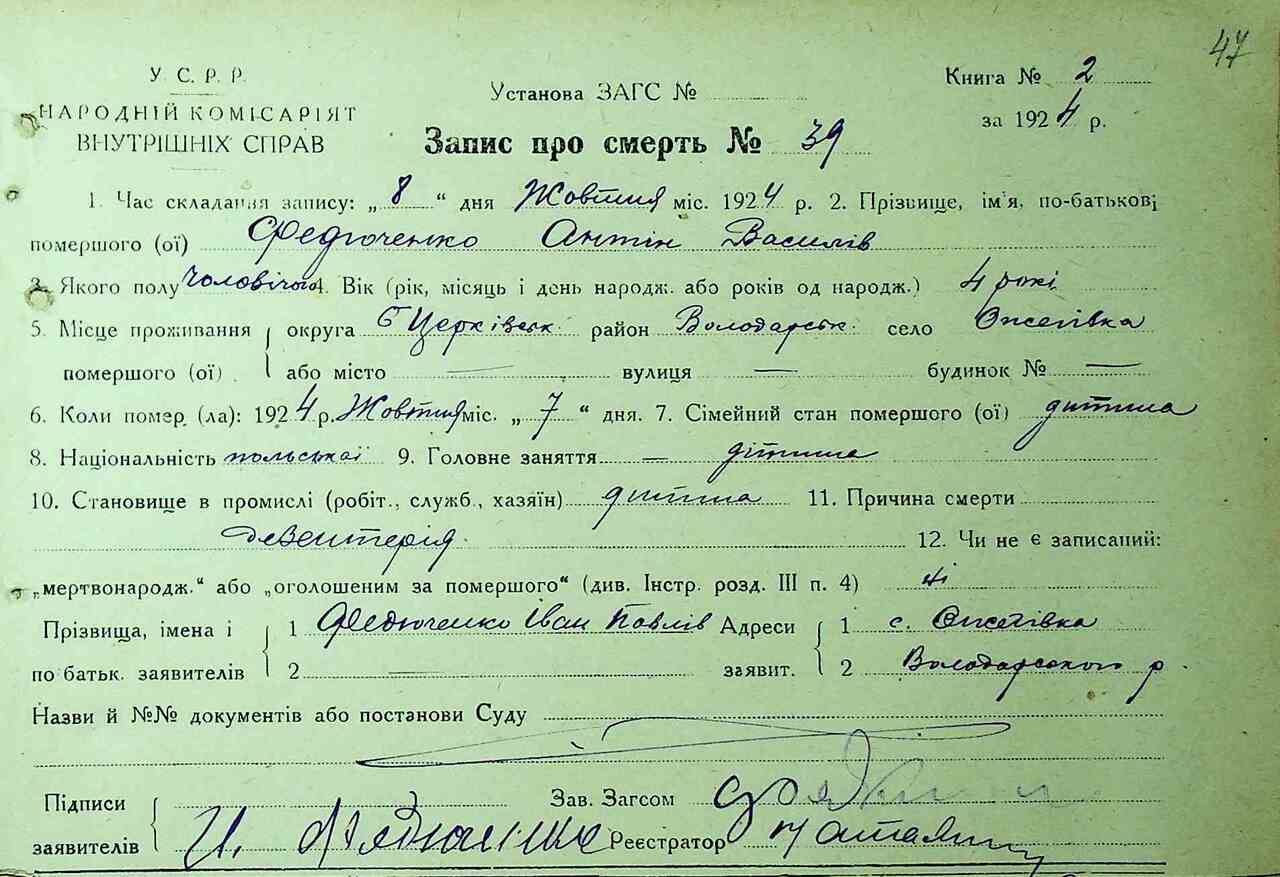 47
У. С. Р. Р.
НАРОДНІЙ КОМІСАРІЯТ
ВНУТРІШНІХ СПРАВ
Установа ЗАГС №
Книга № 2
за 1924 р.
Запис про смерть № 39
1. Час складання запису: „8“ дня Жовтня міс. 1924 р. 2. Прізвище, ім'я, по-батькові
помершого (ої) Федюченко Антін Василів
3. Якого полу чоловічого 4. Вік (рік, місяць і день народж. або років од народж.) 4 рокі
5. Місце проживання округа БЦерківськ. район Володарськ. село
помершого (ої) або місто — вулиця — будинок № —
6. Коли помер (ла): 1924 р. Жовтня міс. „7“ дня. 7. Сімейний стан помершого (ої) дитина
8. Національність польської 9. Головне заняття — дітина
10. Становище в промислі (робіт., служб., хазяїн) дитина 11. Причина смерти
дезентерія 12. Чи не є записаний:
„мертвонародж.“ або „оголошеним за помершого“ (див. Інстр. розд. III п. 4) ні
Прізвища, імена і по батьк. заявителів 1 Федюченко Іван Павлів Адреси заявит. 1 с.
2 — 2 Володарського р.
Назви й №№ документів або постанови Суду
Підписи заявителів И. Федюченко
Зав. Загсом
Реєстратор